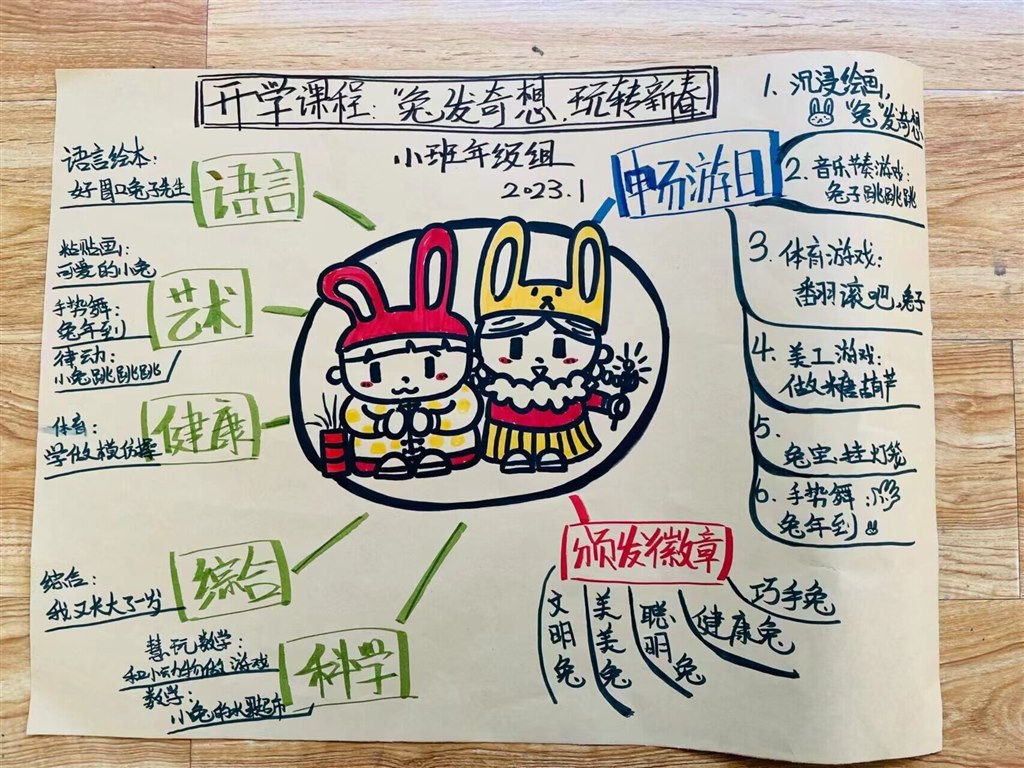 开学课程:“兔发奇想,玩转新春
小班年级组
2023.1
语言
语言绘本:
好胃口兔子先生
艺术
粘贴画:
可爱的小兔
手势舞:
兔年到
律动:
小兔跳跳跳
健康
体育:
学做模仿操
综合
综合:
我又长大了一岁
科学
慧玩数学:
和小动物做游戏
数学:
小兔的水果超市
畅游日
1、沉浸绘画,
“兔”发奇想
2、音乐节奏游戏:
兔子跳跳跳
3、体育游戏:
翻滚吧,兔子
4、美工游戏:
做冰糖葫芦
5、
兔宝挂灯笼
6、手势舞:
兔年到
颁发徽章
文明兔
美美兔
聪明兔
健康兔
巧手兔